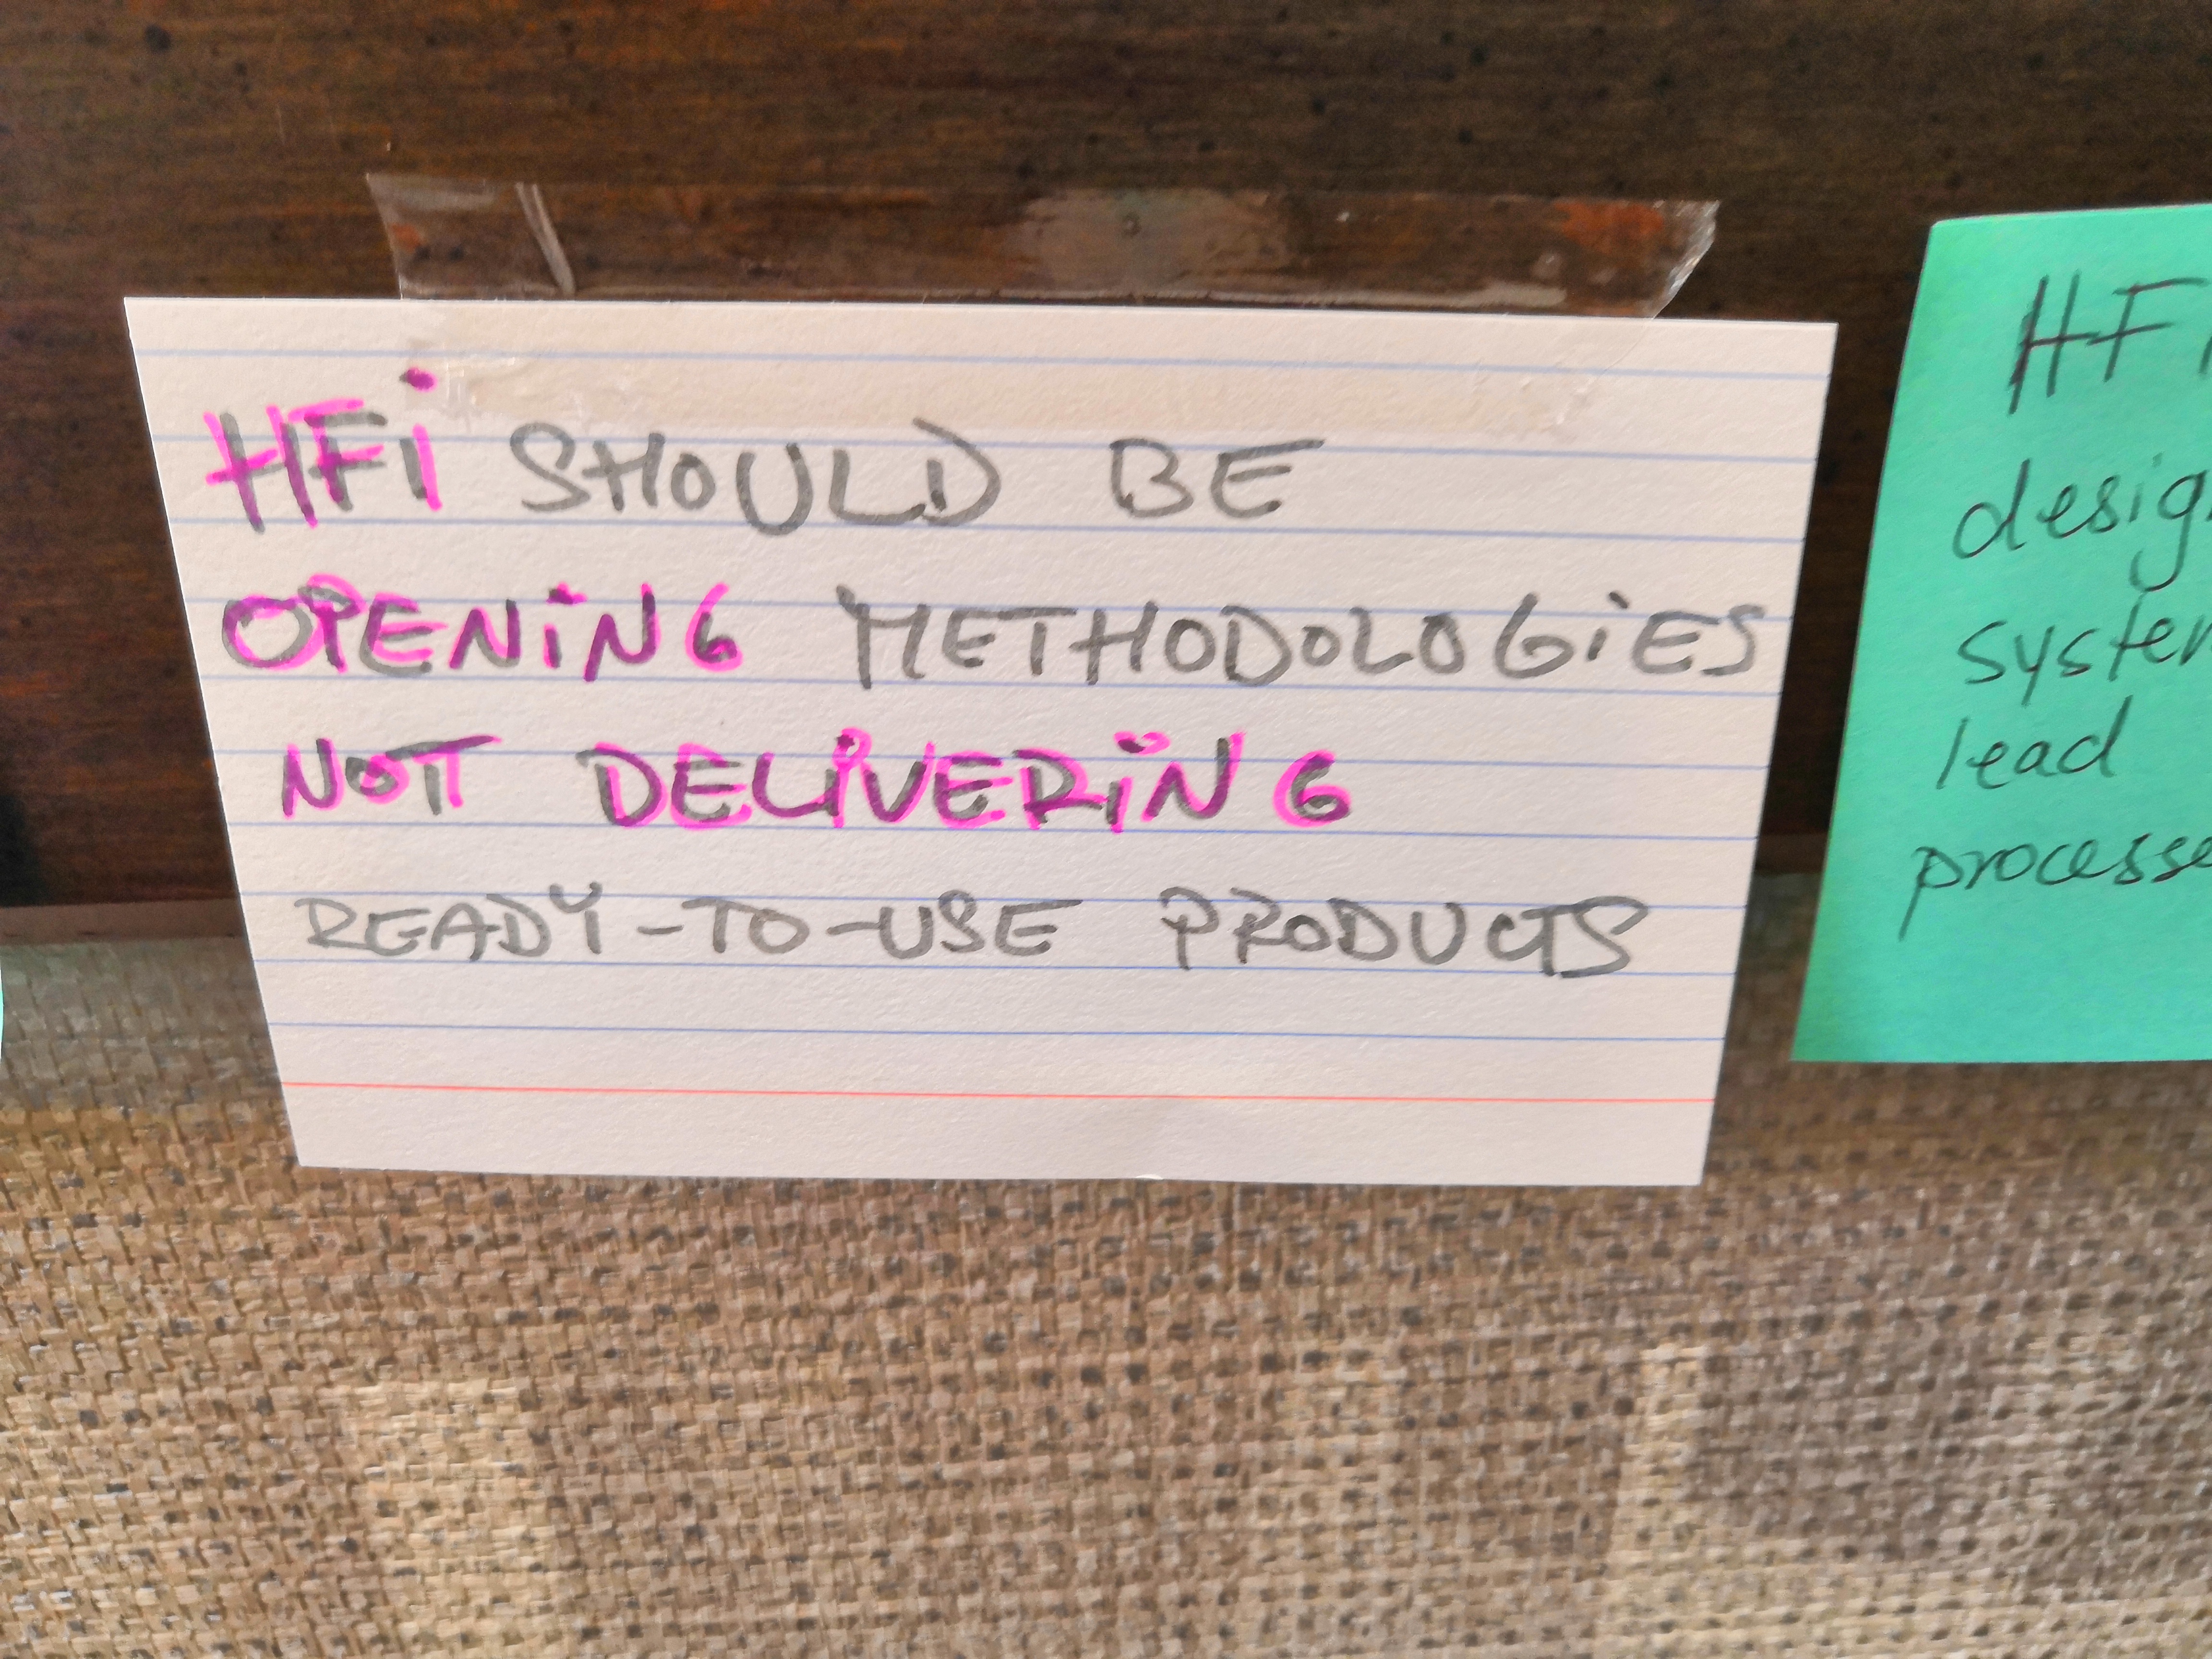 HFi SHOULD BE
OPENiNG METHODOLOGiES
NOT DELiVERiNG
READY-TO-USE PRODUCTS
HF
desig
system
lead
processe